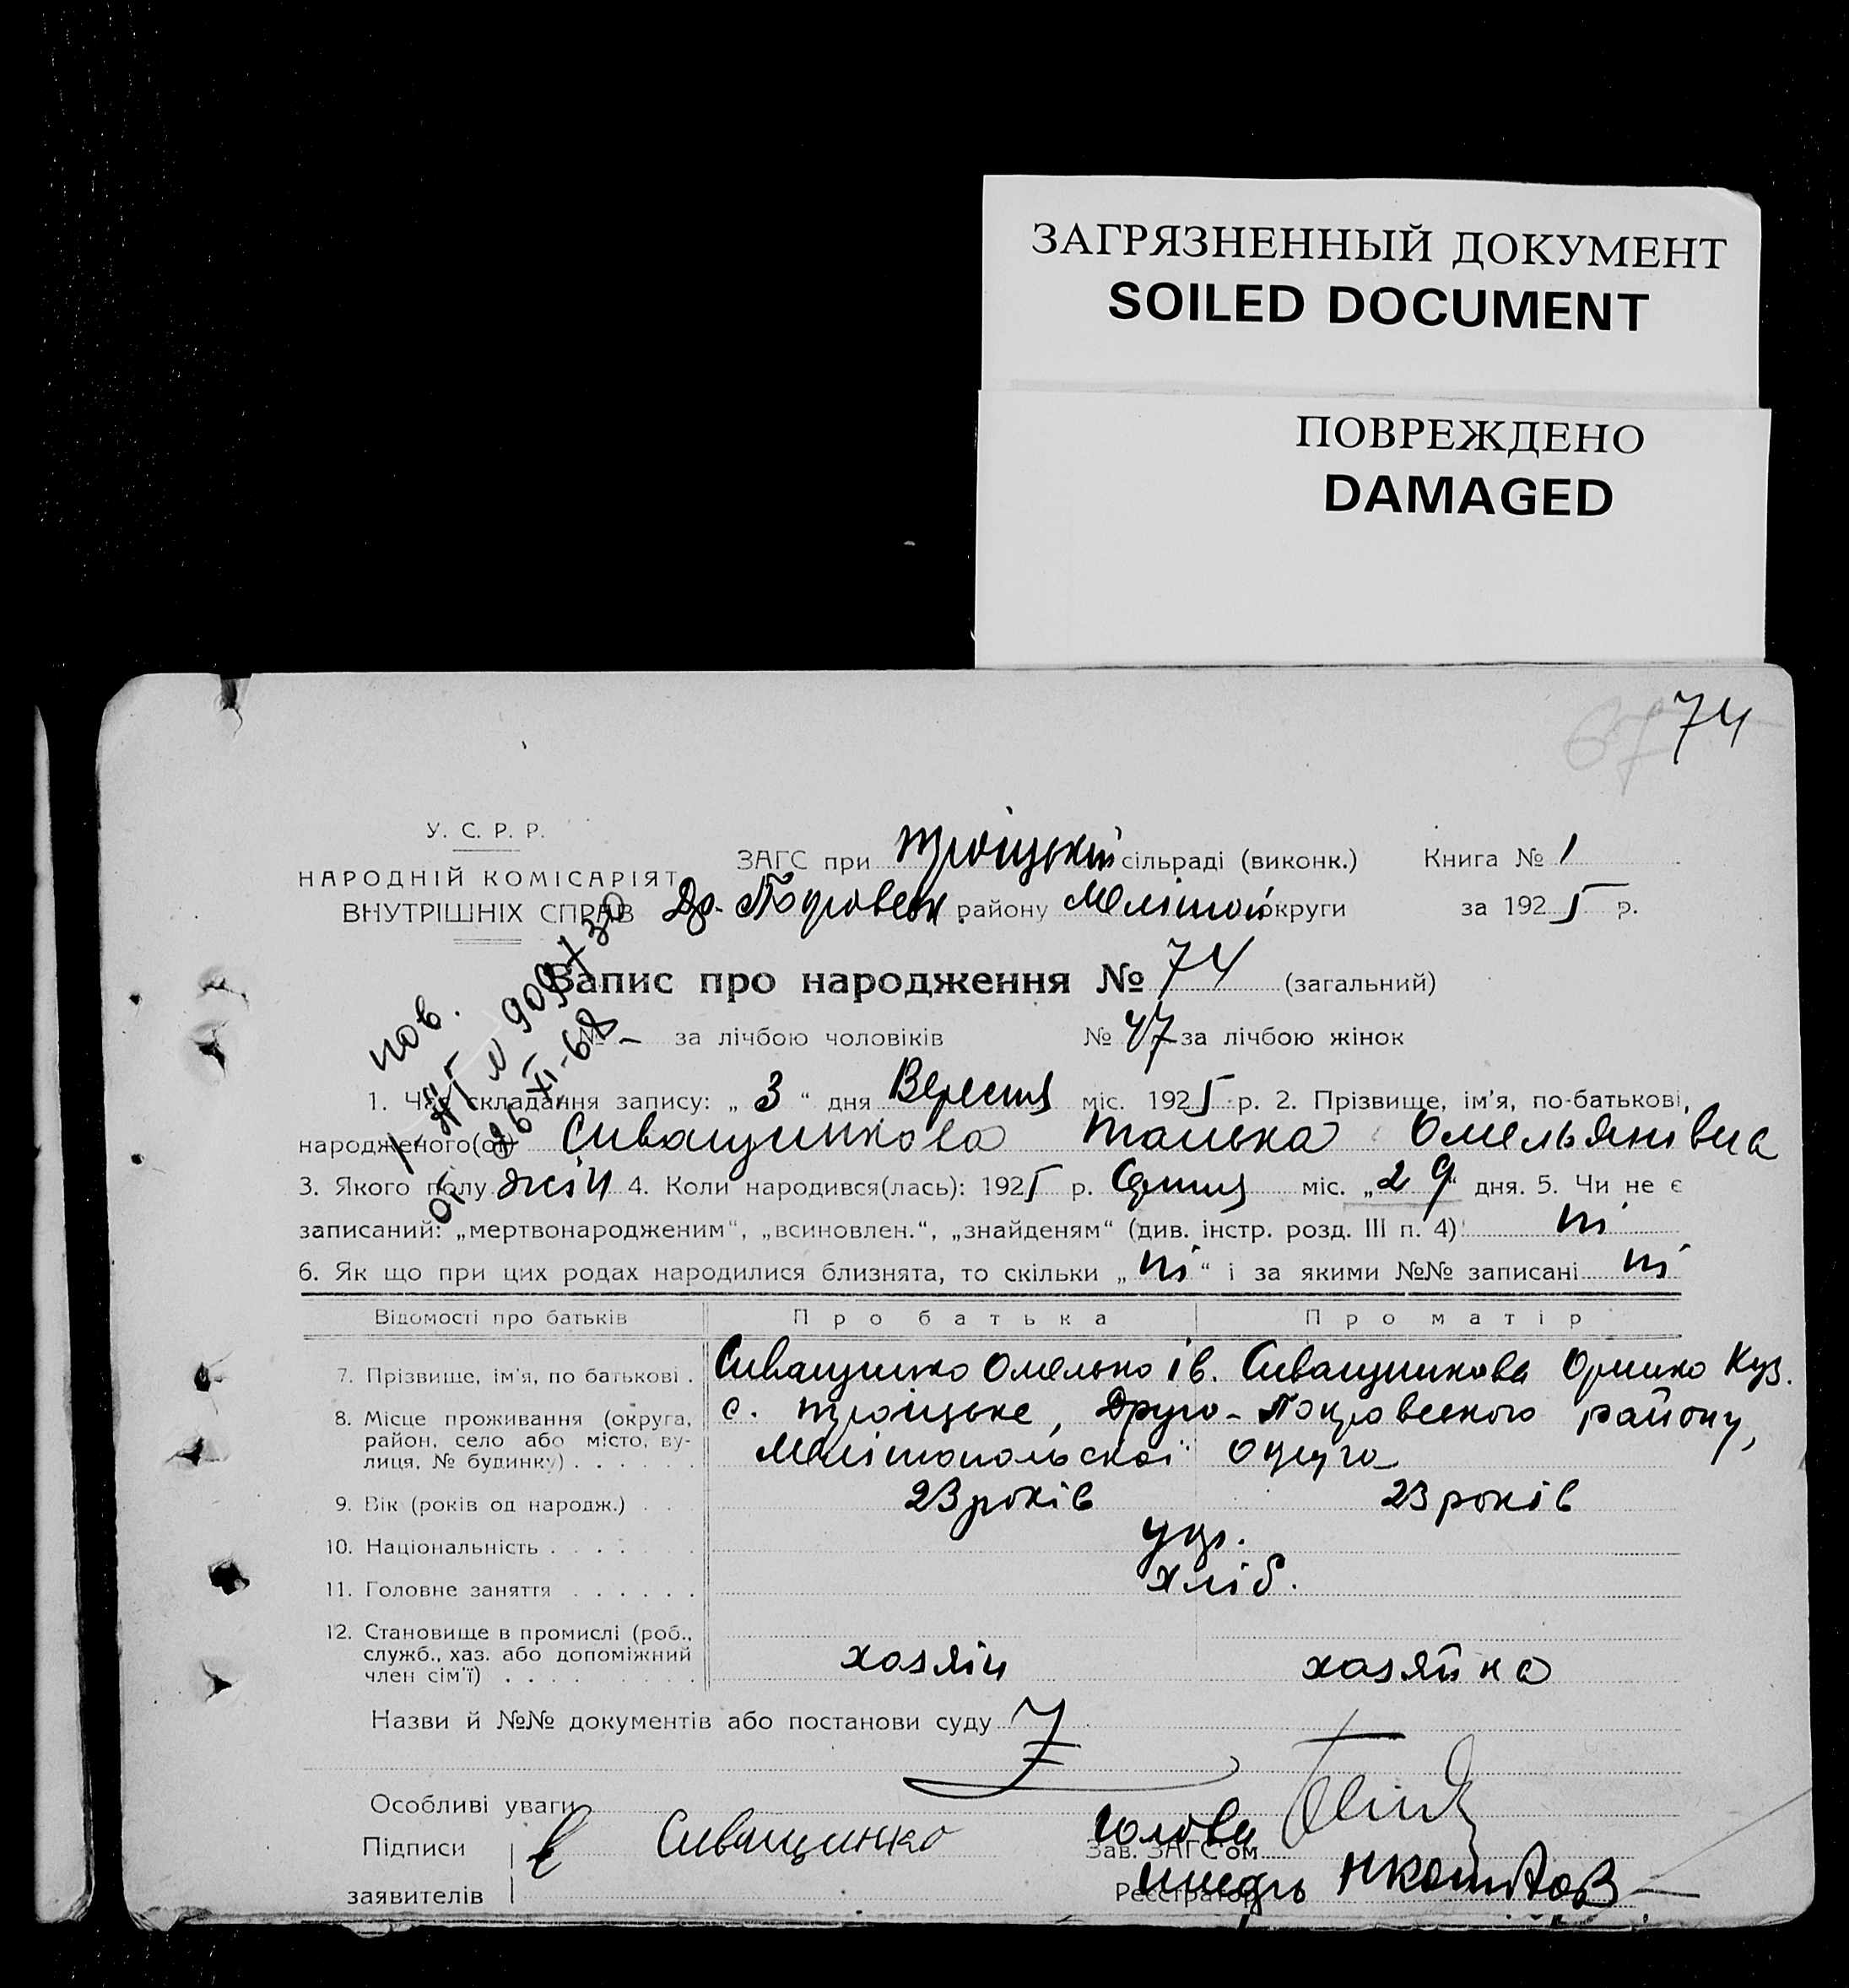 ЗАГРЯЗНЕННЫЙ ДОКУМЕНТ
SOILED DOCUMENT
ПОВРЕЖДЕНО
DAMAGED
67 74
У. С. Р. Р.
НАРОДНІЙ КОМІСАРІЯТ
ВНУТРІШНІХ СПРАВ
ЗАГС при Троіцькій сільраді (виконк.) Книга № 1
Др. Покровськ. району Меліто округи за 1925 р.
Запис про народження № 74 (загальний)
№ – за лічбою чоловіків № 47 за лічбою жінок
пов.
26 XI-68
1. Час складання запису: „ 3 “ дня Вересня міс. 1925 р. 2. Прізвище, ім'я, по-батькові,
народженого(ої) Сиващинкова Танька Омельянівна
3. Якого полу жін 4. Коли народився(лась): 1925 р. Серпня міс. „29“ дня. 5. Чи не є
записаний: „мертвонародженим“, „всиновлен.“, „знайденям“ (див. інстр. розд. III п. 4) ні
6. Як що при цих родах народилися близнята, то скільки „ ні “ і за якими №№ записані ні
Відомості про батьків Про батька Про матір
7. Прізвище, ім'я, по батькові . Сиващинко Омелько Ів. Сиващинкова Оришко Куз.
8. Місце проживання (округа, район, село або місто, вулиця, № будинку) . . . . . . с. Троіцьке, Друго-Покровського району,
Мелітопольскої округа
9. Вік (років од народж.) . . 23 років 23 років
10. Національність . . . . . укр.
11. Головне заняття . . . . . . хліб.
12. Становище в промислі (роб., служб., хаз. або допоміжний член сім'ї) . . . . хазяін хазяйка
Назви й №№ документів або постанови суду
Особливі уваги
Підписи Сиващинко голова
Зав. ЗАГС'ом
заявителів Реєстратор